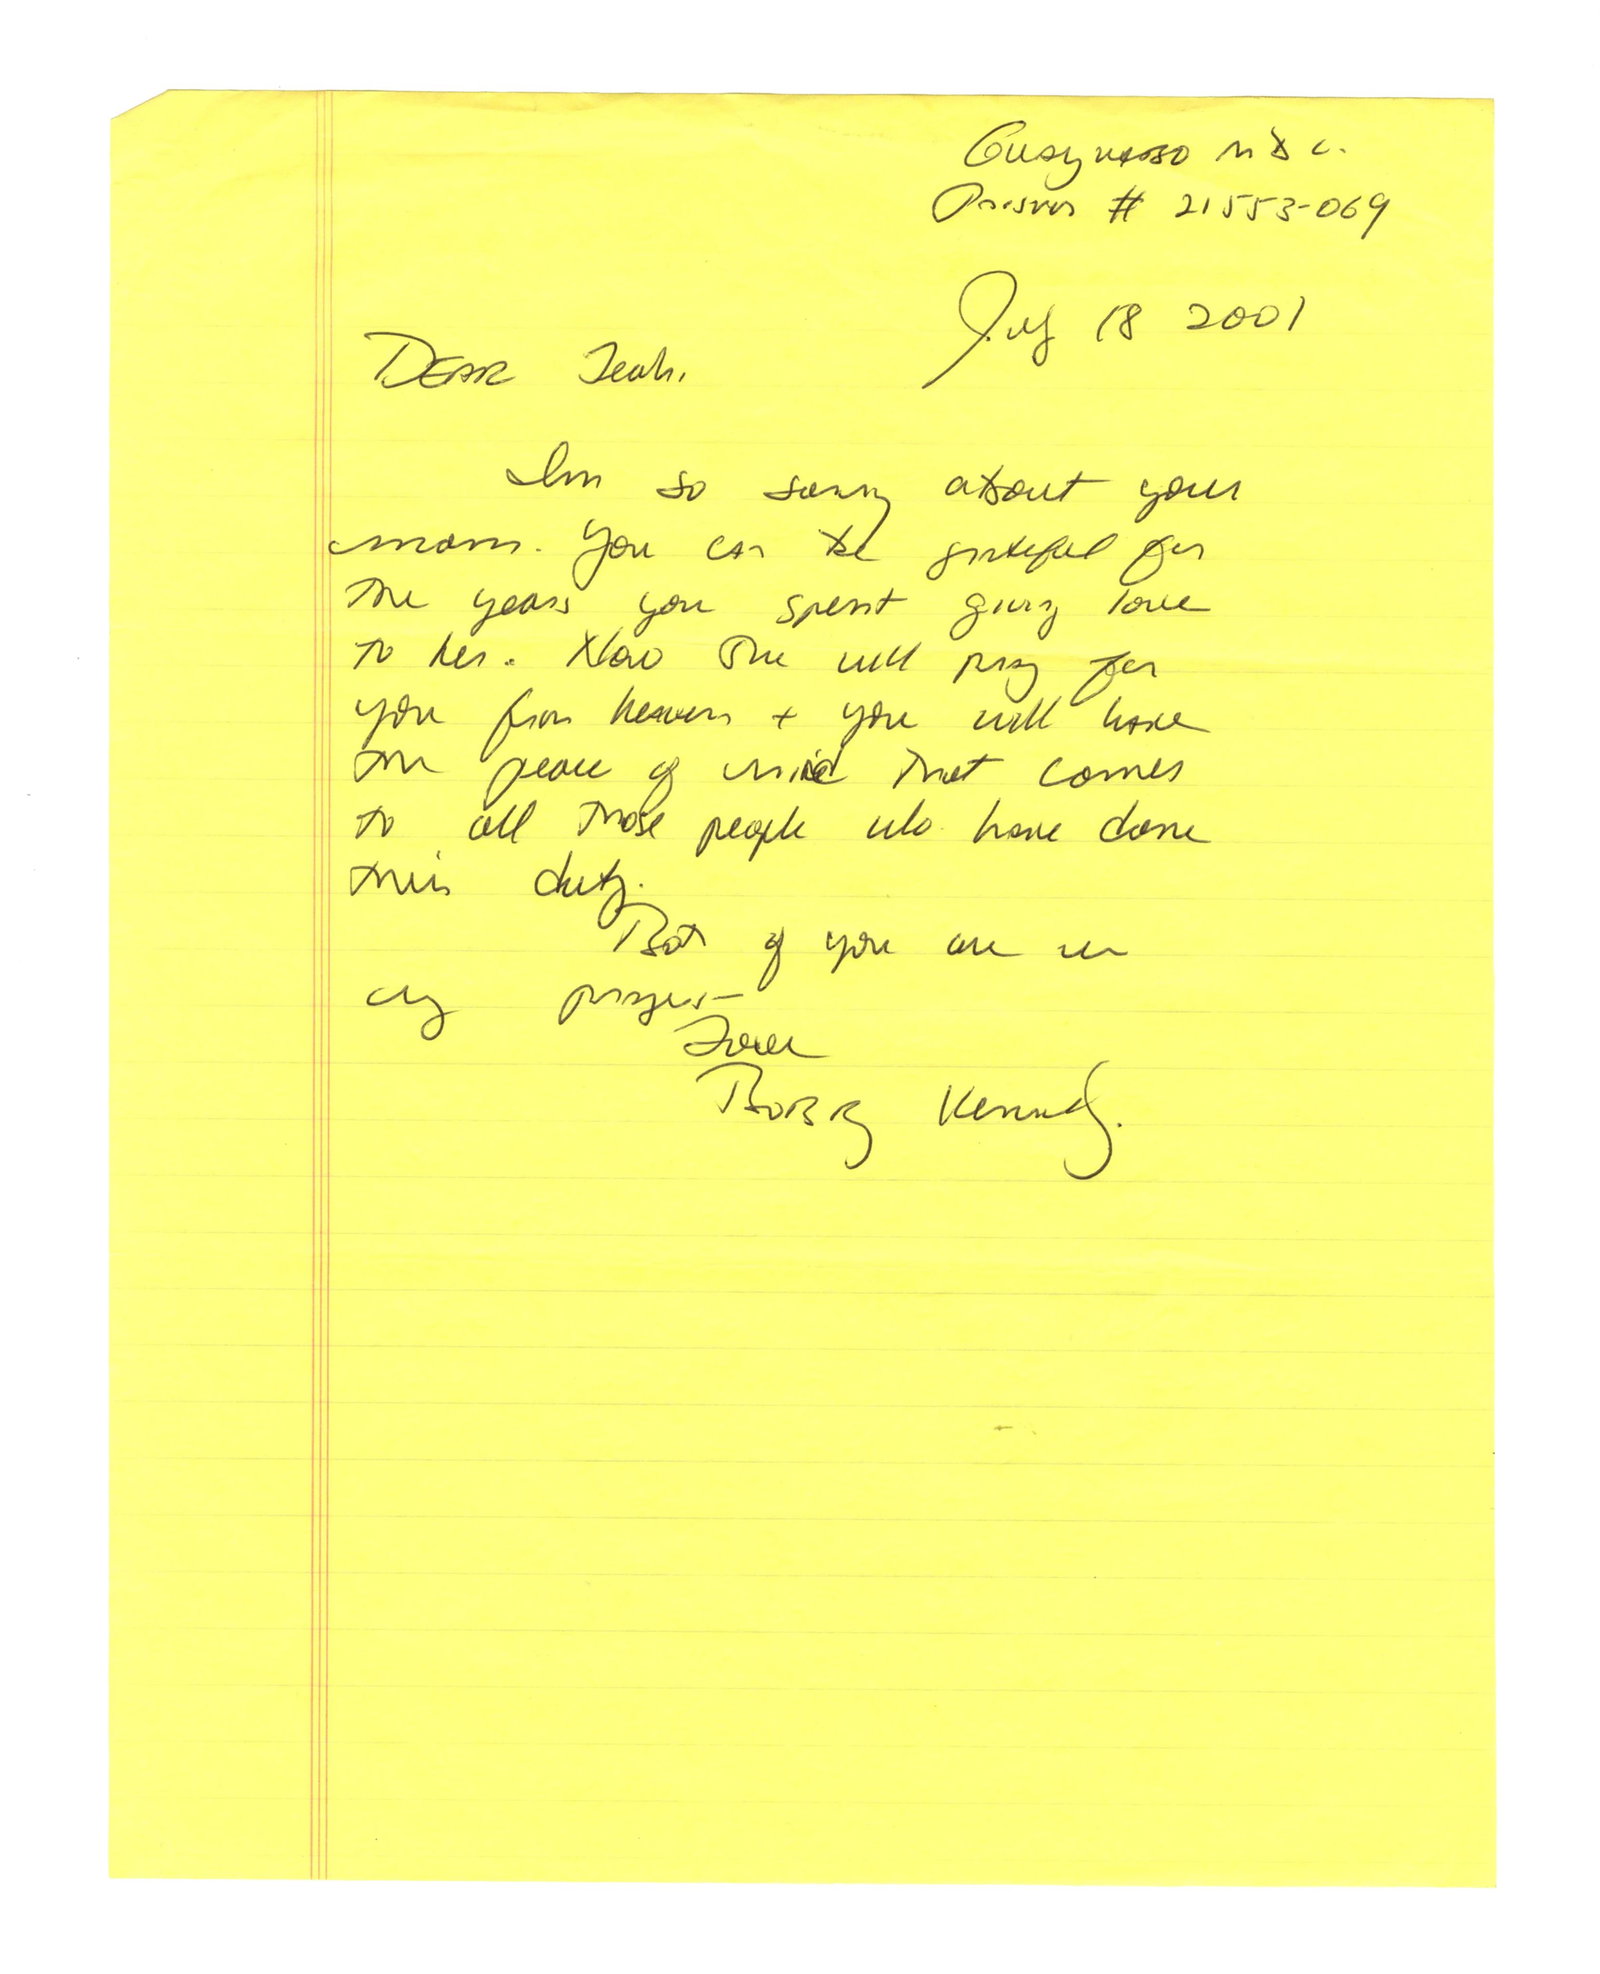 Guaynabo MDC.
Prisoner # 21553-069
July 18 2001
DEAR Leah,
Im so sorry about your
mom. You can be grateful for
the years you spent giving love
to her. Now she will pray for
you from heaven + you will have
the peace of mind that comes
to all those people who have done
their duty.
Both of you are in
my prayers-
Love
Bobby Kennedy.